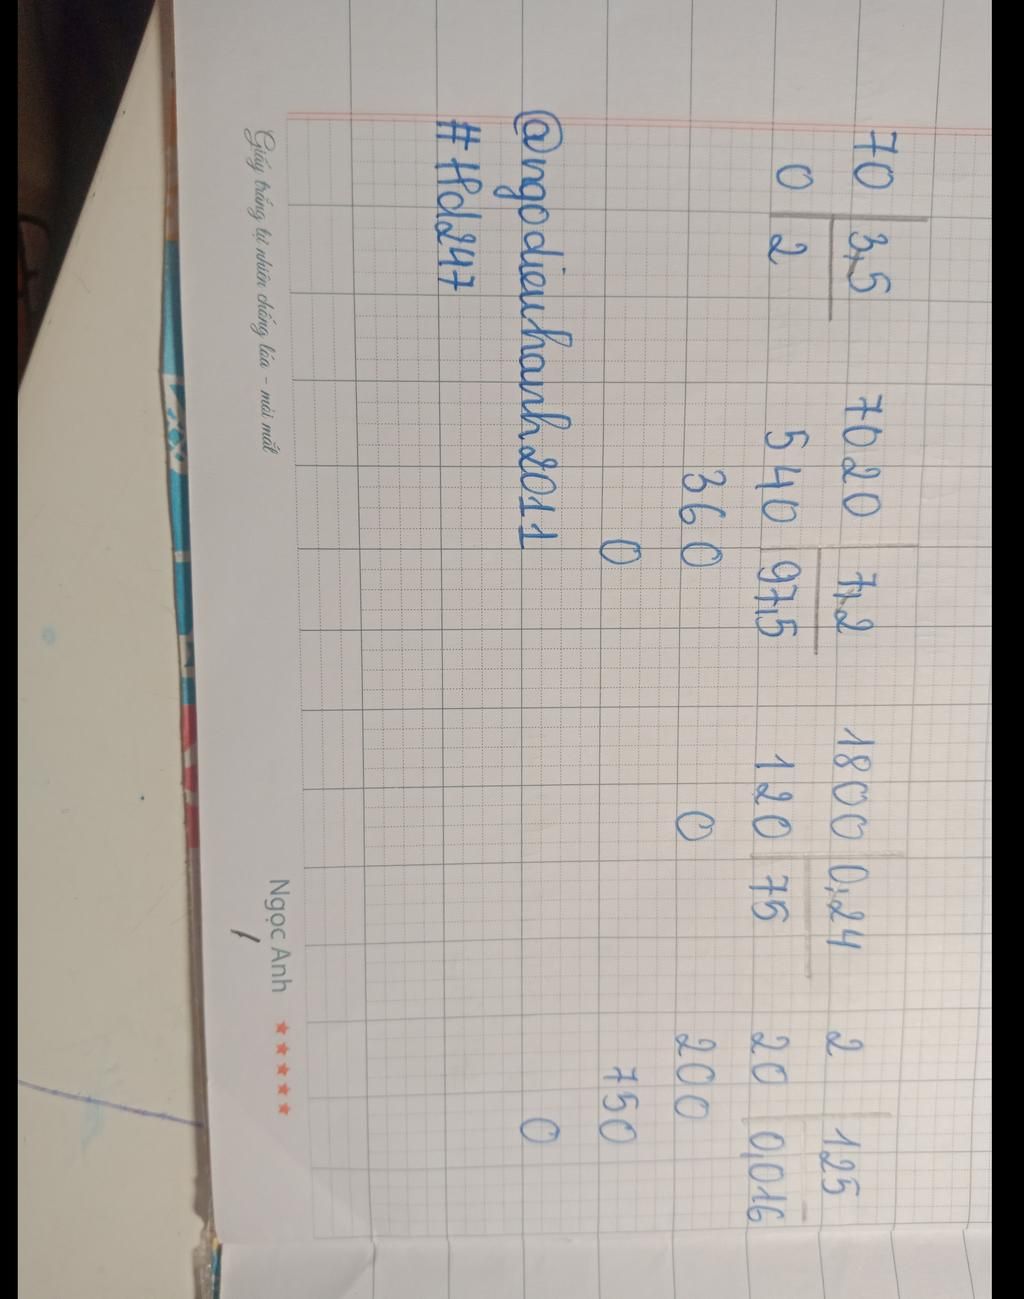 70 3,5 7020 7,2 1800 0,24 2 125
0 2 540 97,5 120 75 20 0,016
360 0 200
0 750
@ngodieuhanh2011 0
#Hd247
Giấy trắng tự nhiên chống lóa - mỏi mắt Ngọc Anh